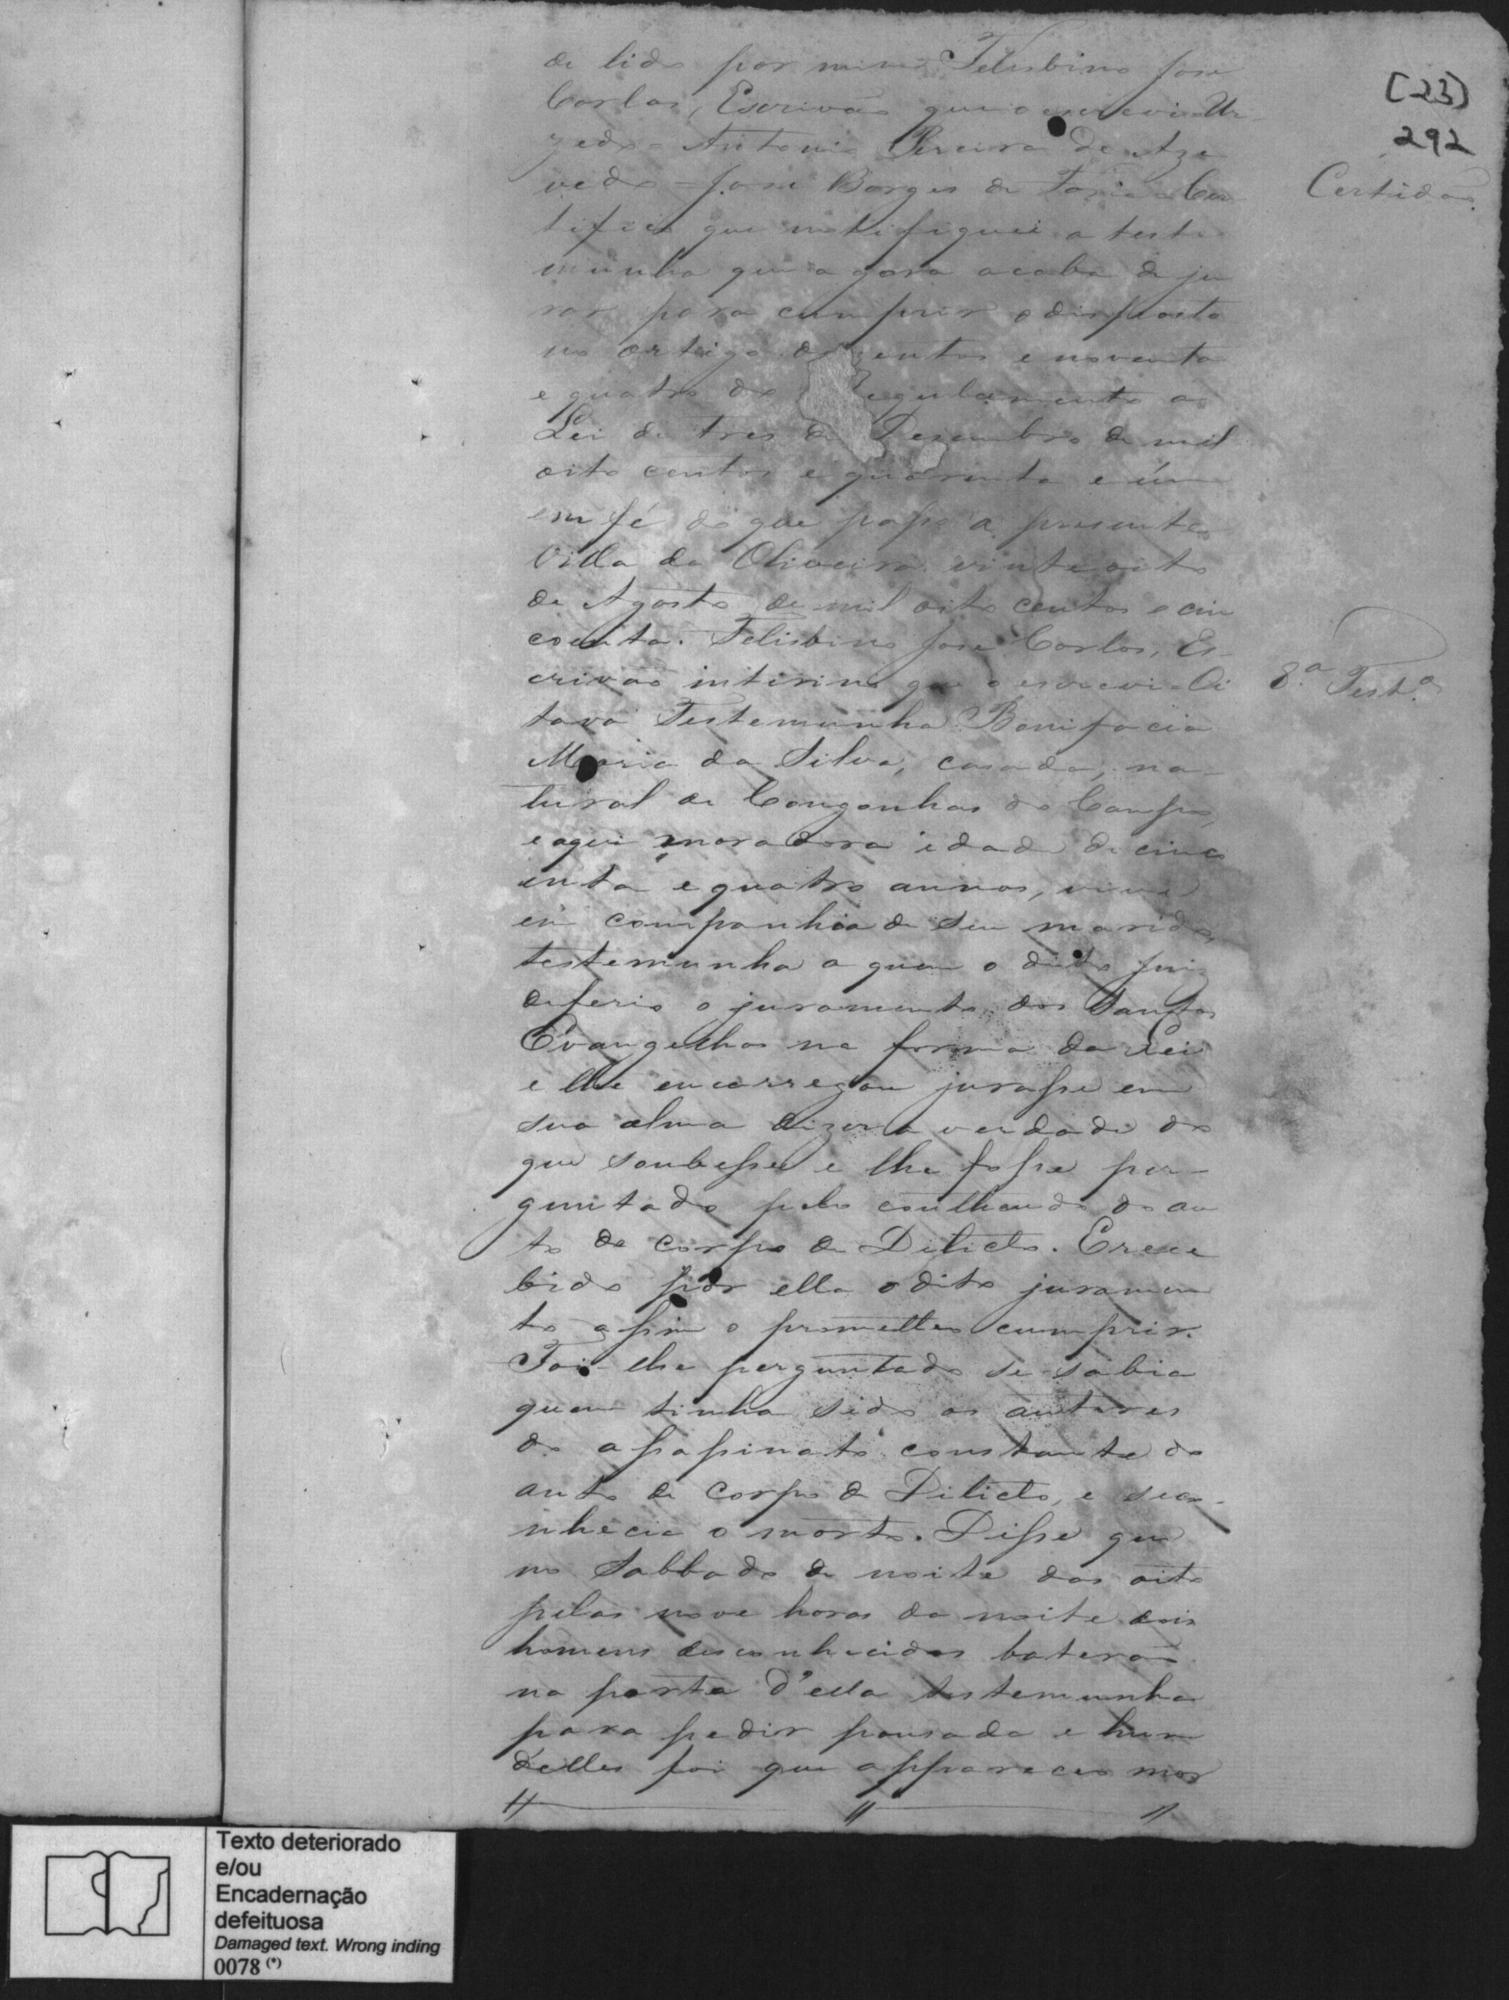 de lido por mim Felisbino José
Carlos, Escrivão que o escrevi = Ur-
zedo = Antonio Pereira de Aze
vedo = José Borges de Faria = Cer
tifico que notifiquei a teste
munha que agora acaba de ju
rar para cumprir o disposto
no artigo duzentos e noventa
e quatro do Regulamento a
Lei de tres de Dezembro de mil
oito centos e quarenta e úm
em fé do que passo a presente
Villa da Oliveira vinte oito
de Agosto de mil oito centos e cin
coenta. Felisbino José Carlos, Es-
crivão interino que o escrevi = Oi
tava Testemunha Bonifacia
Maria da Silva, casada, na-
tural de Congonhas do Campo,
e aqui moradora idade de cinco
enta e quatro annos, vive
em companhia de seu marido,
testemunha a quem o dito Juiz
deferio o juramento dos Santos
Evangelhos na forma da Lei
e lhe encarregou jurasse em
sua alma dizer a verdade do
que soubesse e lhe fosse per-
guntado pelo conthendo do au
to de corpo de Delicto. E rece
bido por ella o dito juramen
to assim o prometteo cumprir.
Foi-lhe perguntado se sabia
quem tinha sido os autores
do assassinato constante do
auto de corpo de Delicto, e se co-
nhecia o morto. Disse que
no Sabbado de noite das oito
pelas nove horas da noite dois
homens desconhecidos baterão
na porta d'ella testemunha
para pedir pousada e hum
delles foi que appareceo mor
(23)
292
Certidão.
8.ª Test.ª
Texto deteriorado
e/ou
Encadernação
defeituosa
Damaged text. Wrong inding
0078 (*)